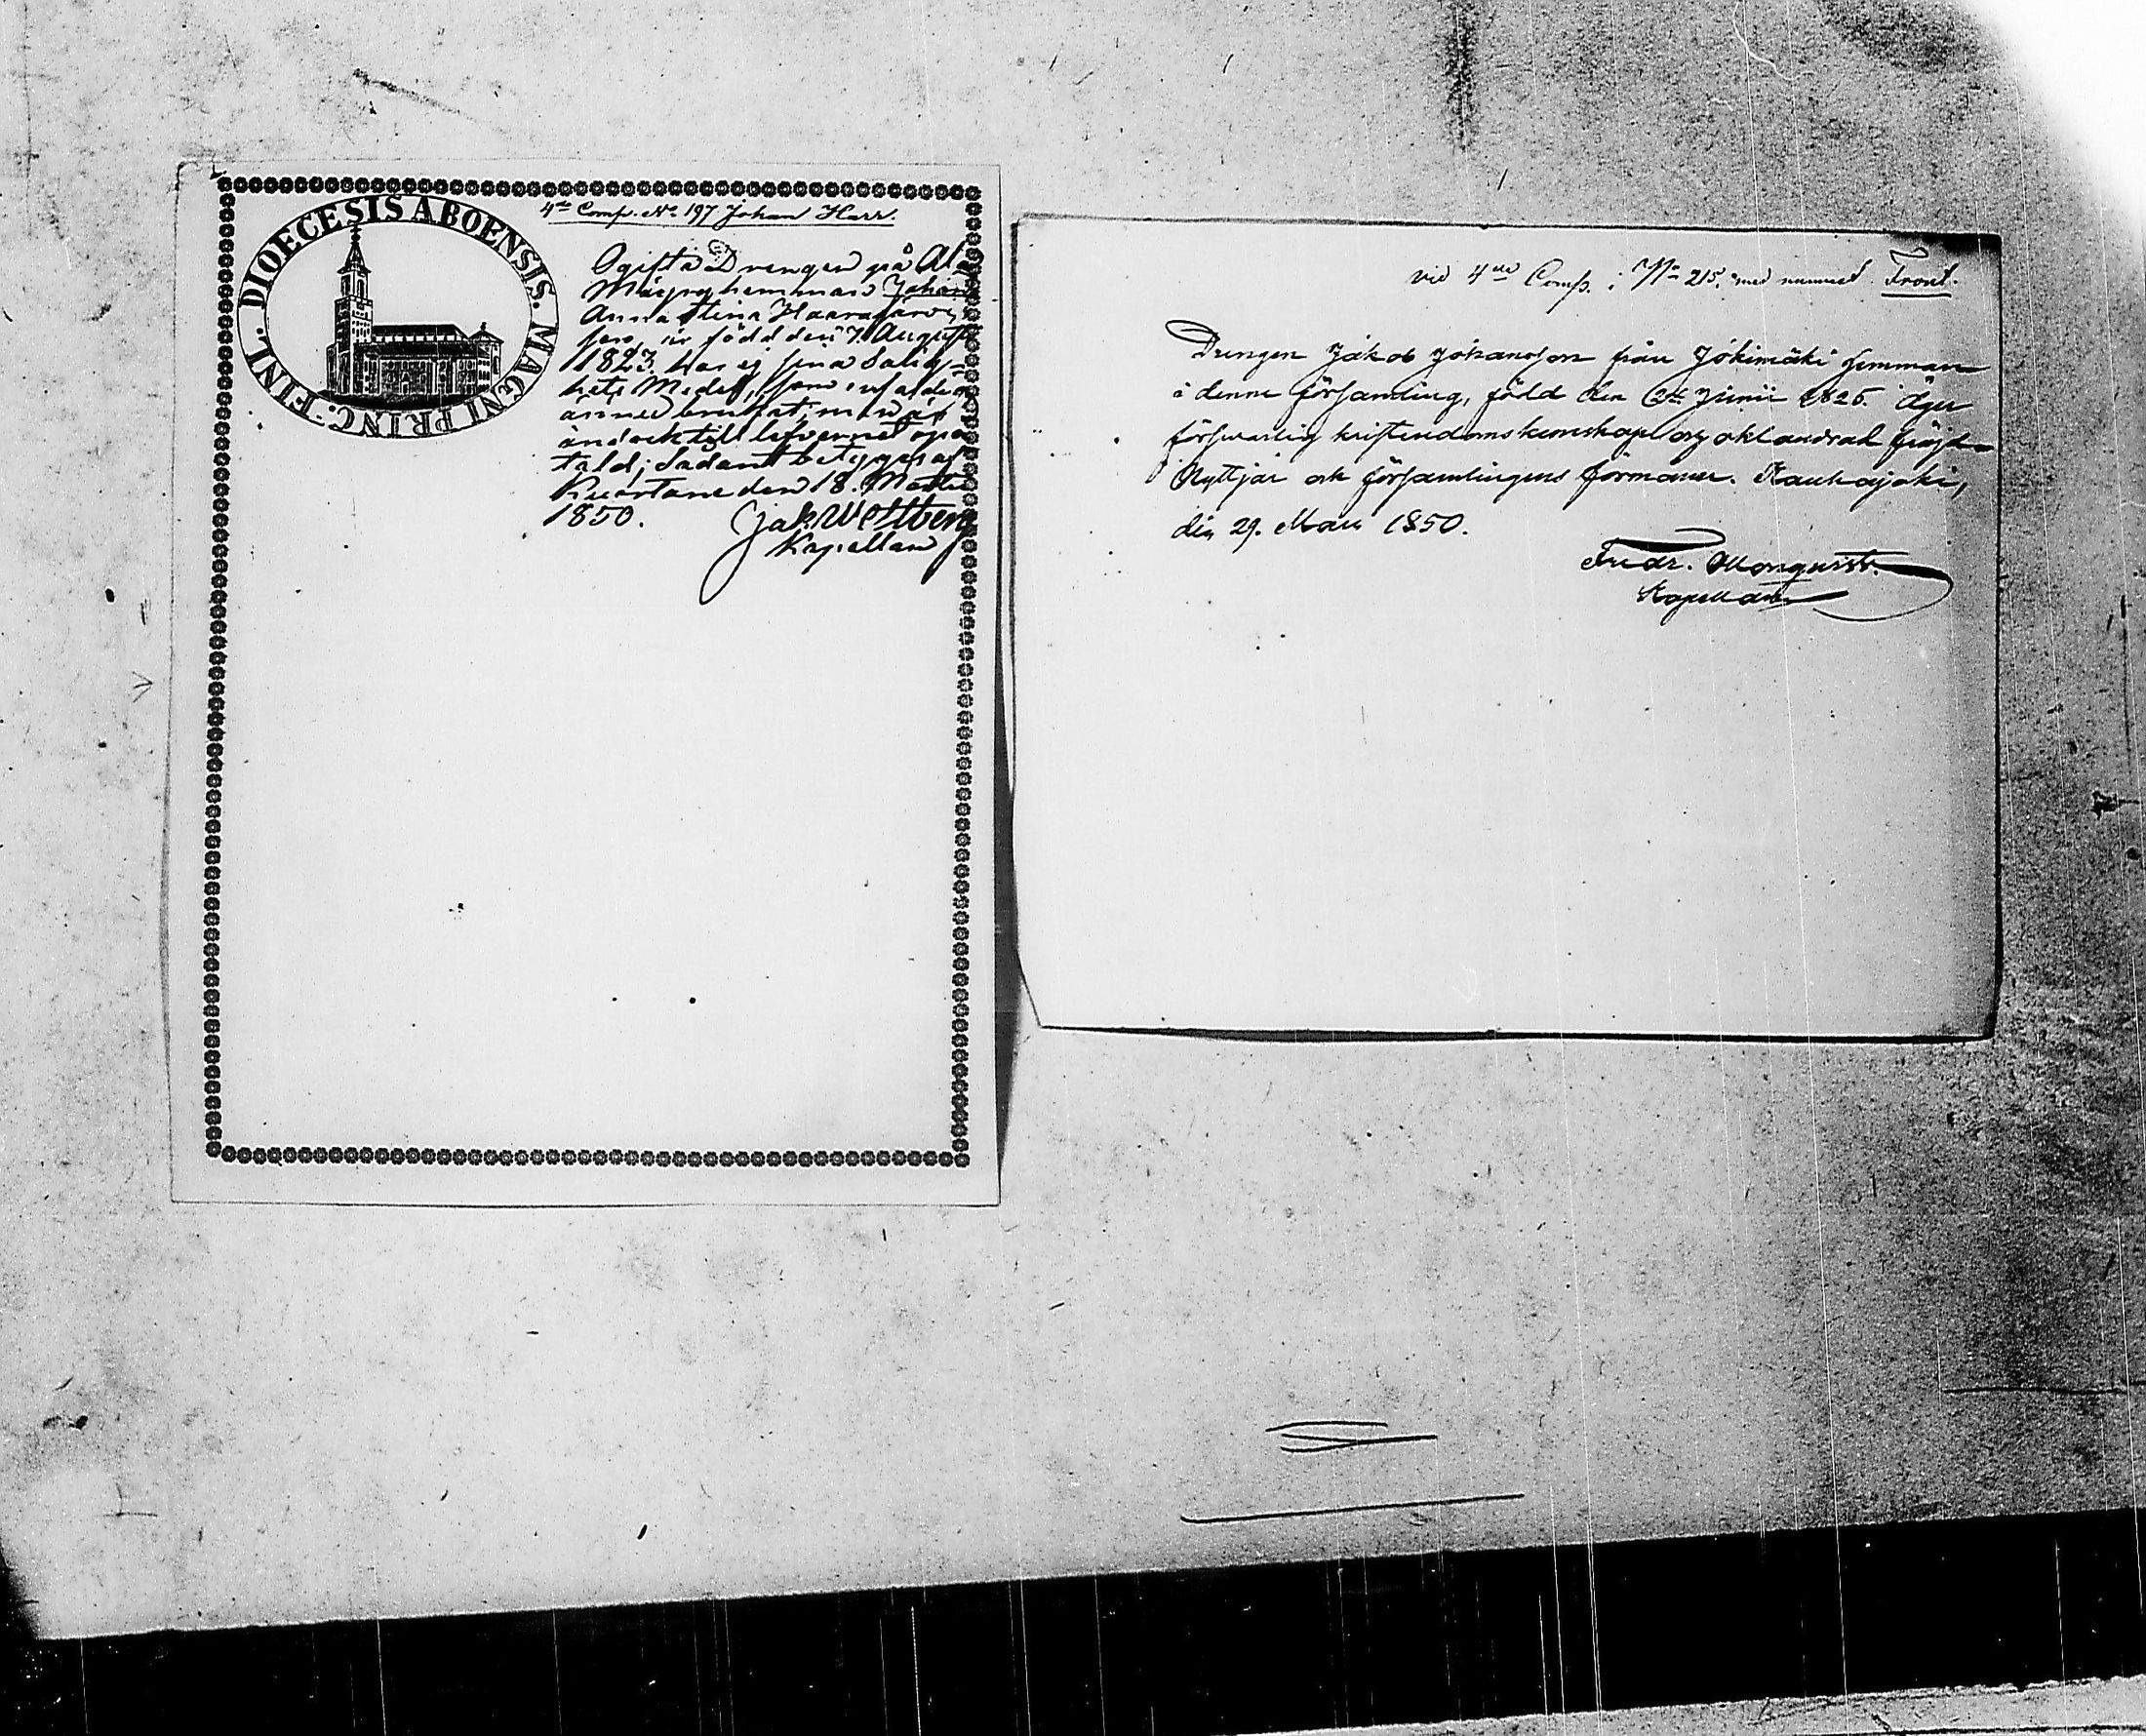 DIOECESIS ABOENSIS. MAGNI PRINC. FINL.
4de Comp. No 197 Johan Harr.
Ogifta Drengen på Ala
Mäyry hemman Johan
Anna Stina Haarajärvi
som, är född den 7. Augusti
1823. har ej sina Salig-
hets Medel,
ännu brukat; men är
ändock till lefvernet opå
tald; Sådant betygas af
Kuortane den 18. Martii
1850.
Jak. Wellberg
Kapellan
vid 4de Comp. i No 215. med namnet Front.
Drengen Jakob Johansson från Jokimäki hemman
i denne församling, född den Junii 1826. äger
försvarlig kristendomskunskap och oklandrad fräjd
Nyttjar ock församlingens förmåner. Kauhajoki,
den 29. Mars 1850.
Fredr.
Kapellan